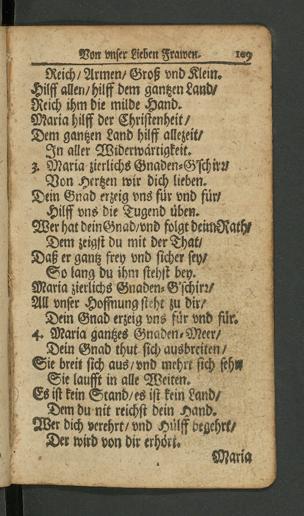 Von vnser Lieben Frawen. 109
Reich/ Armen/ Groß vnd Klein.
Hilff allen/ hilff dem gantzen Land/
Reich ihm die milde Hand.
Maria hilff der Christenheit/
Dem gantzen Land hilff allezeit/
In aller Widerwärtigkeit.
3. Maria zierlichs Gnaden-G'schirr/
Von Hertzen wir dich lieben.
Dein Gnad erzeig vns für vnd für/
Hilff vns die Tugend üben.
Wer hat dein Gnad/ vnd folgt deim Rath/
Dem zeigst du mit der That/
Daß er gantz frey vnd sicher sey/
So lang du ihm stehst bey.
Maria zierlichs Gnaden-G'schirr/
All vnser Hoffnung steht zu dir/
Dein Gnad erzeig vns für vnd für.
4. Maria gantzes Gnaden-Meer/
Dein Gnad thut sich ausbreiten/
Sie breit sich aus/ vnd mehrt sich sehr/
Sie laufft in alle Weiten.
Es ist kein Stand/ es ist kein Land/
Dem du nit reichst dein Hand.
Wer dich verehrt/ vnd Hülff begehrt/
Der wird von dir erhört.
Maria